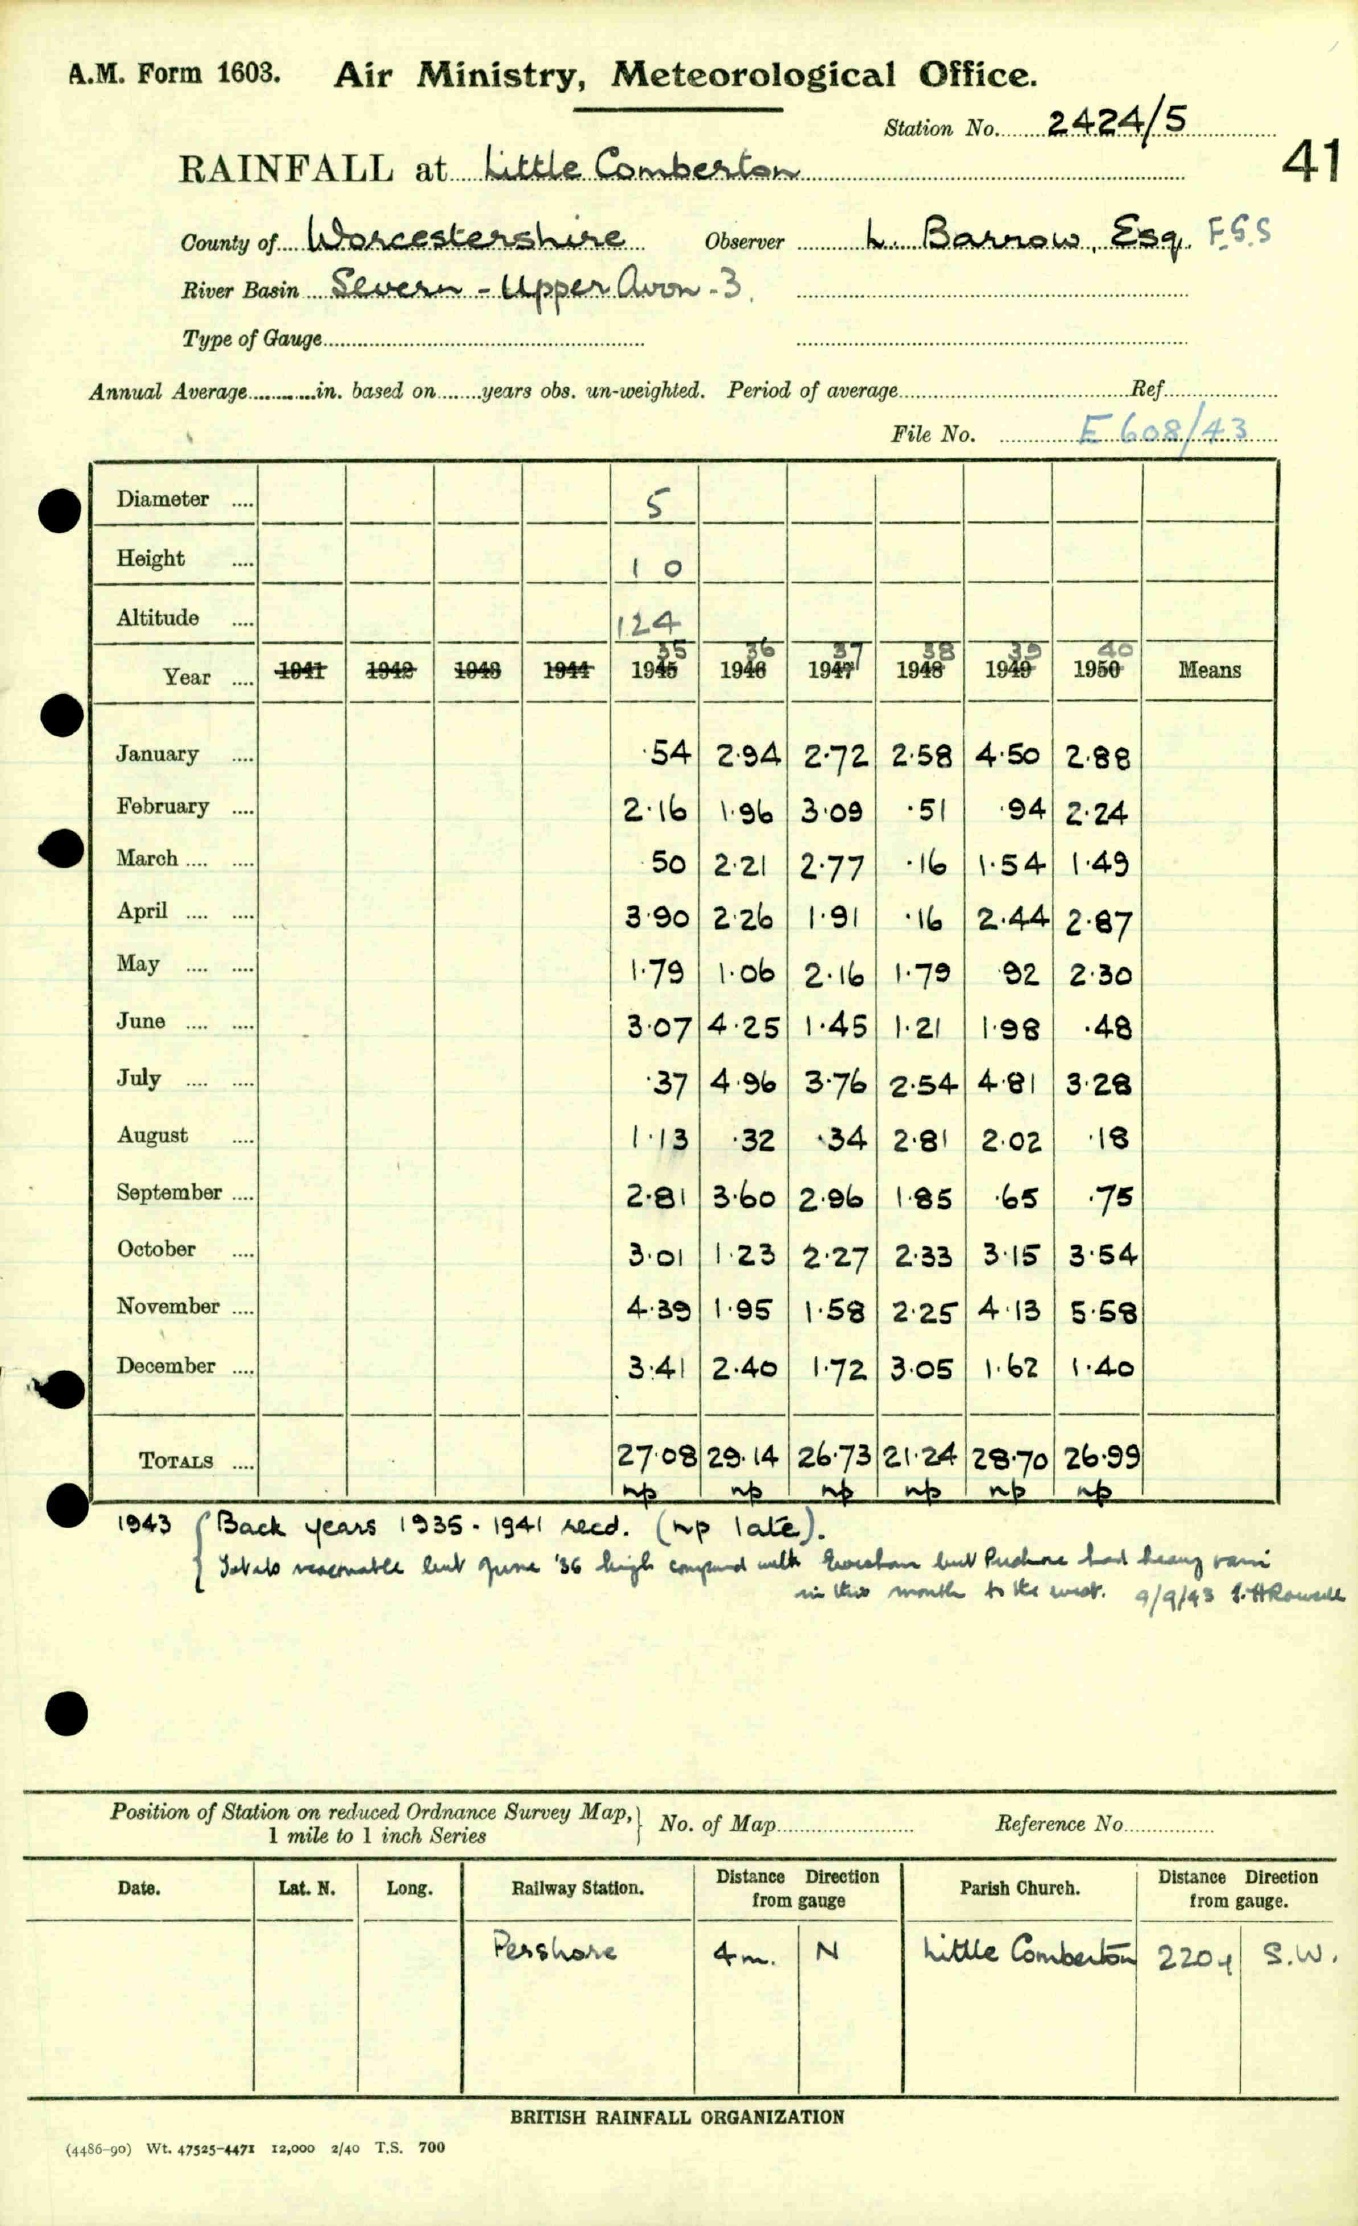 A.M. Form 1603. Air Ministry, Meteorological Office.
Station No. 2424/5
41
RAINFALL at Little Comberton
County of Worcestershire Observer L. Barrow, Esq. F.G.S
River Basin Severn - Upper Avon - 3.
Type of Gauge
Annual Average in. based on years obs. un-weighted. Period of average Ref.
File No. E 608/43
Diameter 5
Height 1 0
Altitude 124
35 36 37 38 39 40
Year 1941 1942 1943 1944 1945 1946 1947 1948 1949 1950 Means
January ·54 2·94 2·72 2·58 4·50 2·88
February 2·16 1·96 3·09 ·51 ·94 2·24
March ·50 2·21 2·77 ·16 1·54 1·49
April 3·90 2·26 1·91 ·16 2·44 2·87
May 1·79 1·06 2·16 1·79 ·92 2·30
June 3·07 4·25 1·45 1·21 1·98 ·48
July ·37 4·96 3·76 2·54 4·81 3·28
August 1·13 ·32 ·34 2·81 2·02 ·18
September 2·81 3·60 2·96 1·85 ·65 ·75
October 3·01 1·23 2·27 2·33 3·15 3·54
November 4·39 1·95 1·58 2·25 4·13 5·58
December 3·41 2·40 1·72 3·05 1·62 1·40
TOTALS 27·08 29·14 26·73 21·24 28·70 26·99
np np np np np np
1943 { Back years 1935 - 1941 recd. (np late).
Totals reasonable but June '36 high compared with Evesham but Pershore had heavy rain
in this month to the west. 9/9/43
Position of Station on reduced Ordnance Survey Map, } No. of Map Reference No.
1 mile to 1 inch Series
Date. Lat. N. Long. Railway Station. Distance Direction from gauge Parish Church. Distance Direction from gauge.
Pershore 4m. N Little Comberton 220y S.W.
BRITISH RAINFALL ORGANIZATION
(4486-90) Wt. 47525-4471 12,000 2/40 T.S. 700